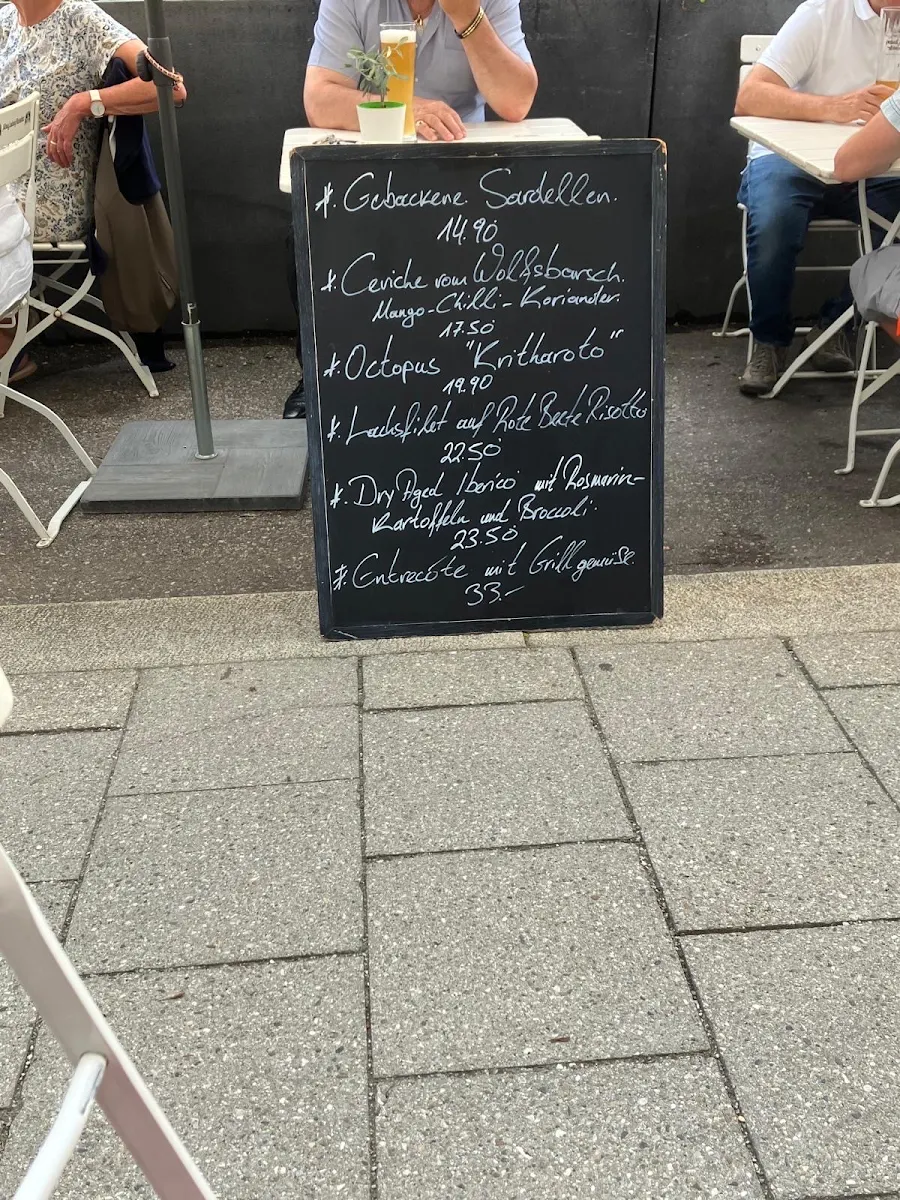 *. Gebackene Sardellen.
14.90
*. Ceviche vom Wolfsbarsch.
Mango-Chilli-Koriander.
17.50
*. Octopus "Kritharoto"
19.90
*. Lachsfilet auf Rote Beete Risotto
22.50
*. Dry Aged Iberico mit Rosmarin-
Kartoffeln und Broccoli.
23.50
*. Entrecôte mit Grillgemüse.
33.-